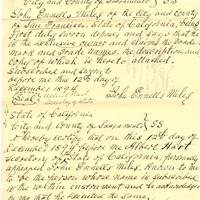 City and County of Sacramento } SS
John Ennells Miles of the city and County
of San Francisco State of California, being
first duly sworn deposes and says that he
is the exclusive owner and claims the Trade
Mark and Trade name, the description and
Copy of which is hereto attached.
Subscribed and Sworn to
before me this 12th day of
December 1894
John Ennells Miles
Secretary of State
State of California
City and County of Sacramento } SS
I hereby certify that on this 12th day of
December 1894 before me Albert Hart
Secretary of State of California, personally
appeared John Ennells Miles. Known to me
to be the person whose name is subscribed
to the within instrument and he acknowledged
to me that he executed the same.